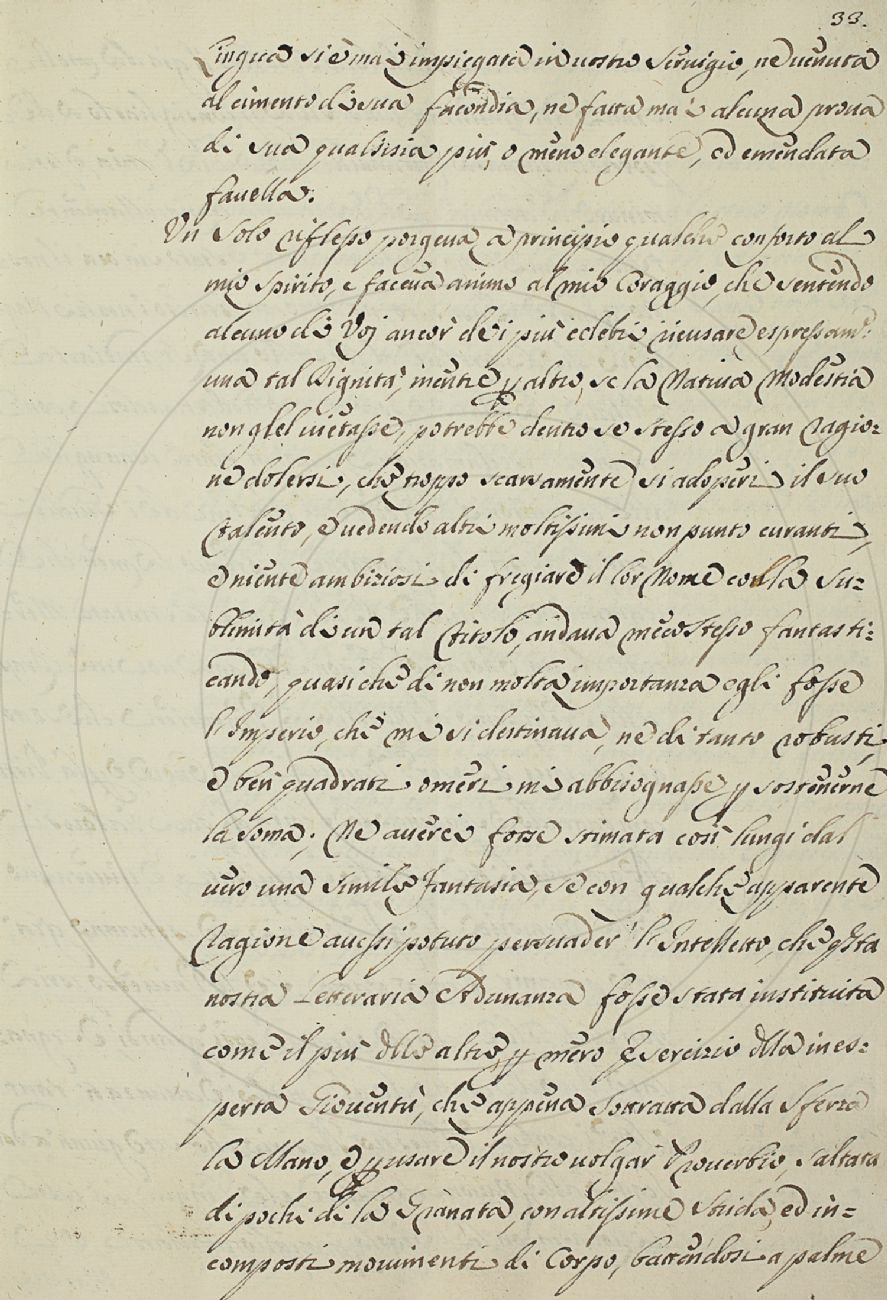 33.
Lingua si è mai impiegata in vostro Servigio, ne venuta
al cimento di sua facondia, ne fatta mai alcuna prova
di sua qualsisia più, o meno elegante, ed emendata
favella.
Un Solo riflesso porgeva a principio qualche conforto al
mio spirito, e faceva animo al mio Coraggio, che sentendo
alcuno di Voj ancor dei più celebri ricusare espressam:
una tal Dignità, mentre p altro, se la Nativa Modestia
non glel vietasse, potrebbe dentro se stesso a gran ragio=
ne dolersi, che troppo scarsamente si adoperi il suo
talento, e vedendo altri moltissimi non punto curanti,
e niente ambiziosi di fregiare il lor Nome colla Su=
blimità di un tal titolo, andava meco stesso fantasti=
cando, quasi che di non molta importanza egli fosse
l'Imperio, che mi si destinava, ne di tanto robusti,
e ben quadrati omeri mi abbisognasse p sostenerne
la Soma; Ne averei forse stimata così lungi dal
vero una simile fantasia, se con qualche apparente
ragione avessi potuto persuader l'Intelletto, che qsta
nostra Letteraria Adunanza fosse stata instituita
come il più dlle altre, p mero Esercizio dlla ines=
perta Gioventù, che appena sottratta dalla sferza
la Mano, e p usare il nostro volgar Proverbio, saltata
di pochi dì la Granata, con altissime strida, ed in=
composti movimenti di Corpo, battendosi a palme